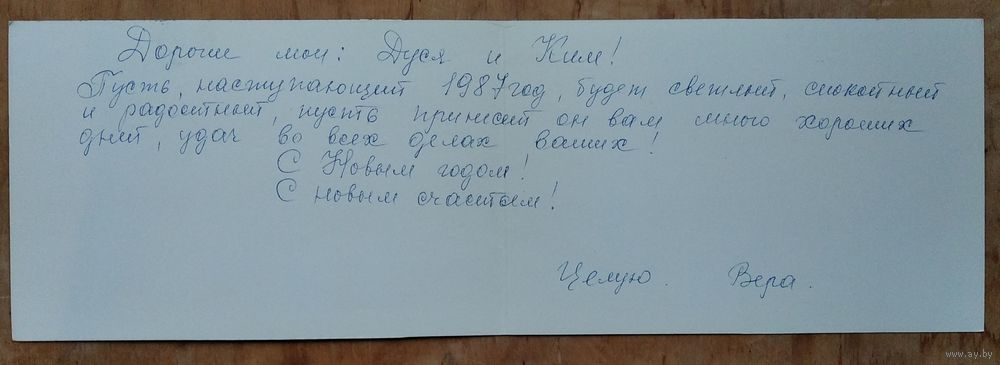 Дорогие мои: Дуся и Ким!
Пусть, наступающий 1987 год, будет светлый, спокойный
и радостный, пусть принесет он вам много хороших
дней, удач во всех делах ваших!
С Новым годом!
С новым счастьем!
Целую. Вера.
www.ay.by